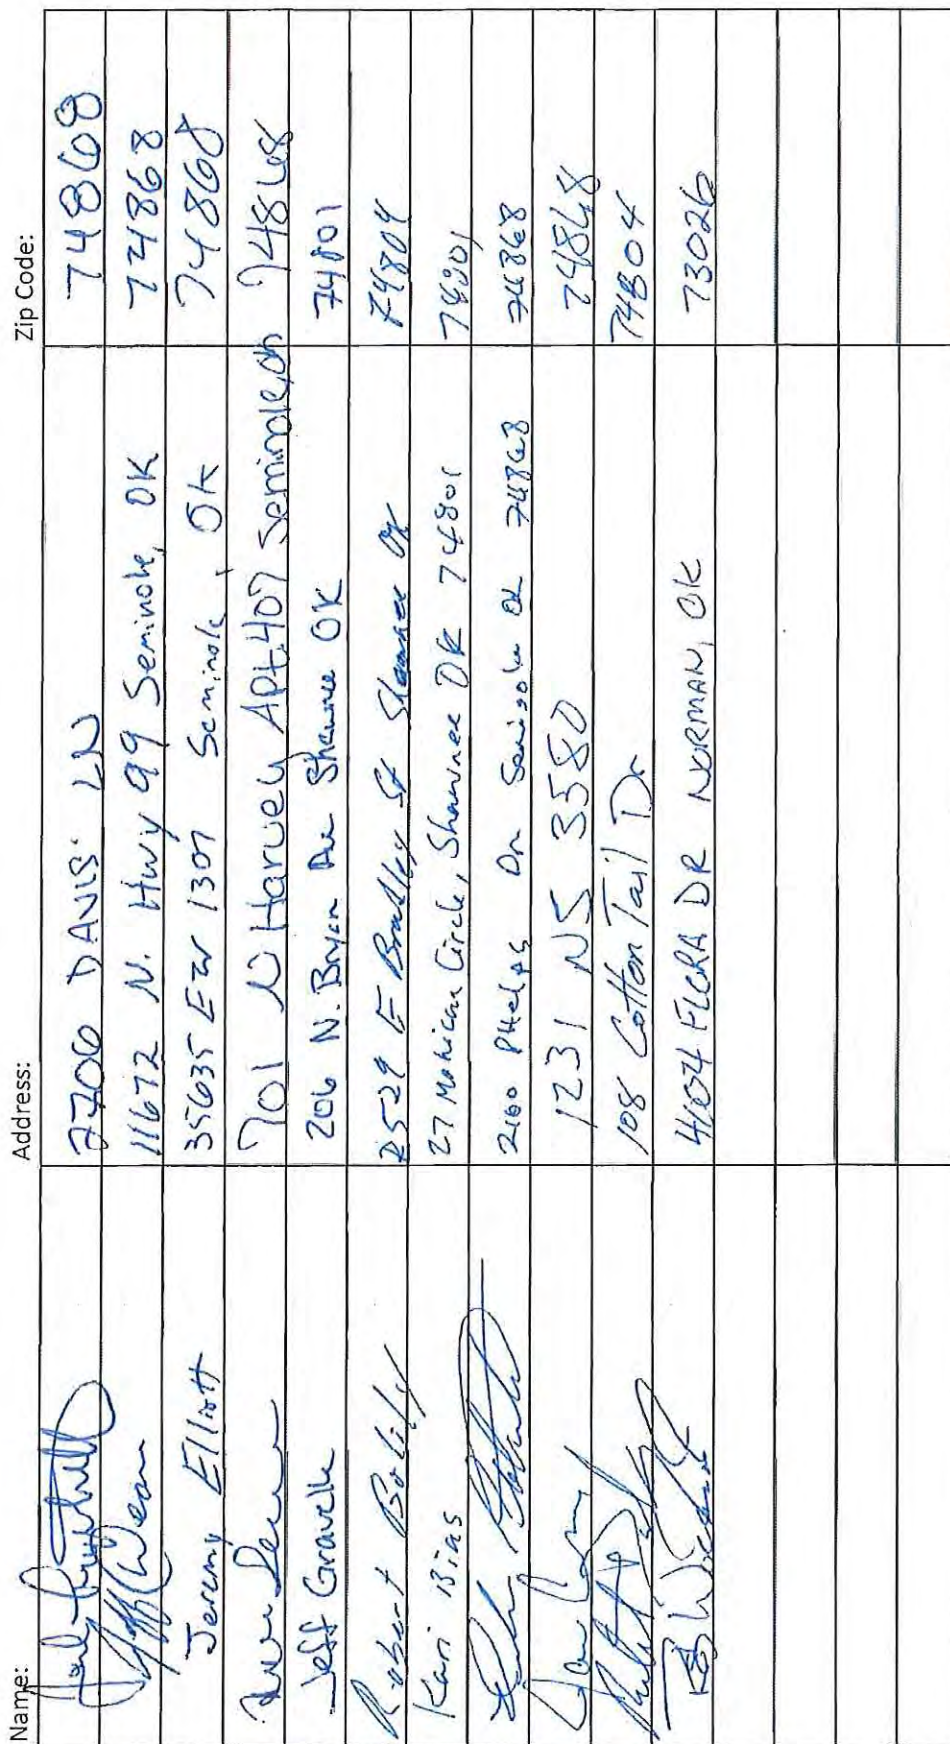 Name: Address: Zip Code:
2706 DAVIS LN 74868
Jeff Dean 11672 N. Hwy 99 Seminole, OK 74868
Jeremy Elliott 35635 EW 1307 Seminole, OK 74868
701 N Harvey Apt.407 Seminole, OK 74868
Jeff Gravelle 206 N. Bryan Ave Shawnee OK 74801
Robert E Bradley St Shawnee OK 74804
Kari Bias 27 Mohican Circle, Shawnee OK 74801 74801
2160 PHelps Dr Seminole OK 74868 74868
1231 NS 3580 74868
108 Cotton Tail Dr 74804
4104 FLORA DR NORMAN, OK 73026